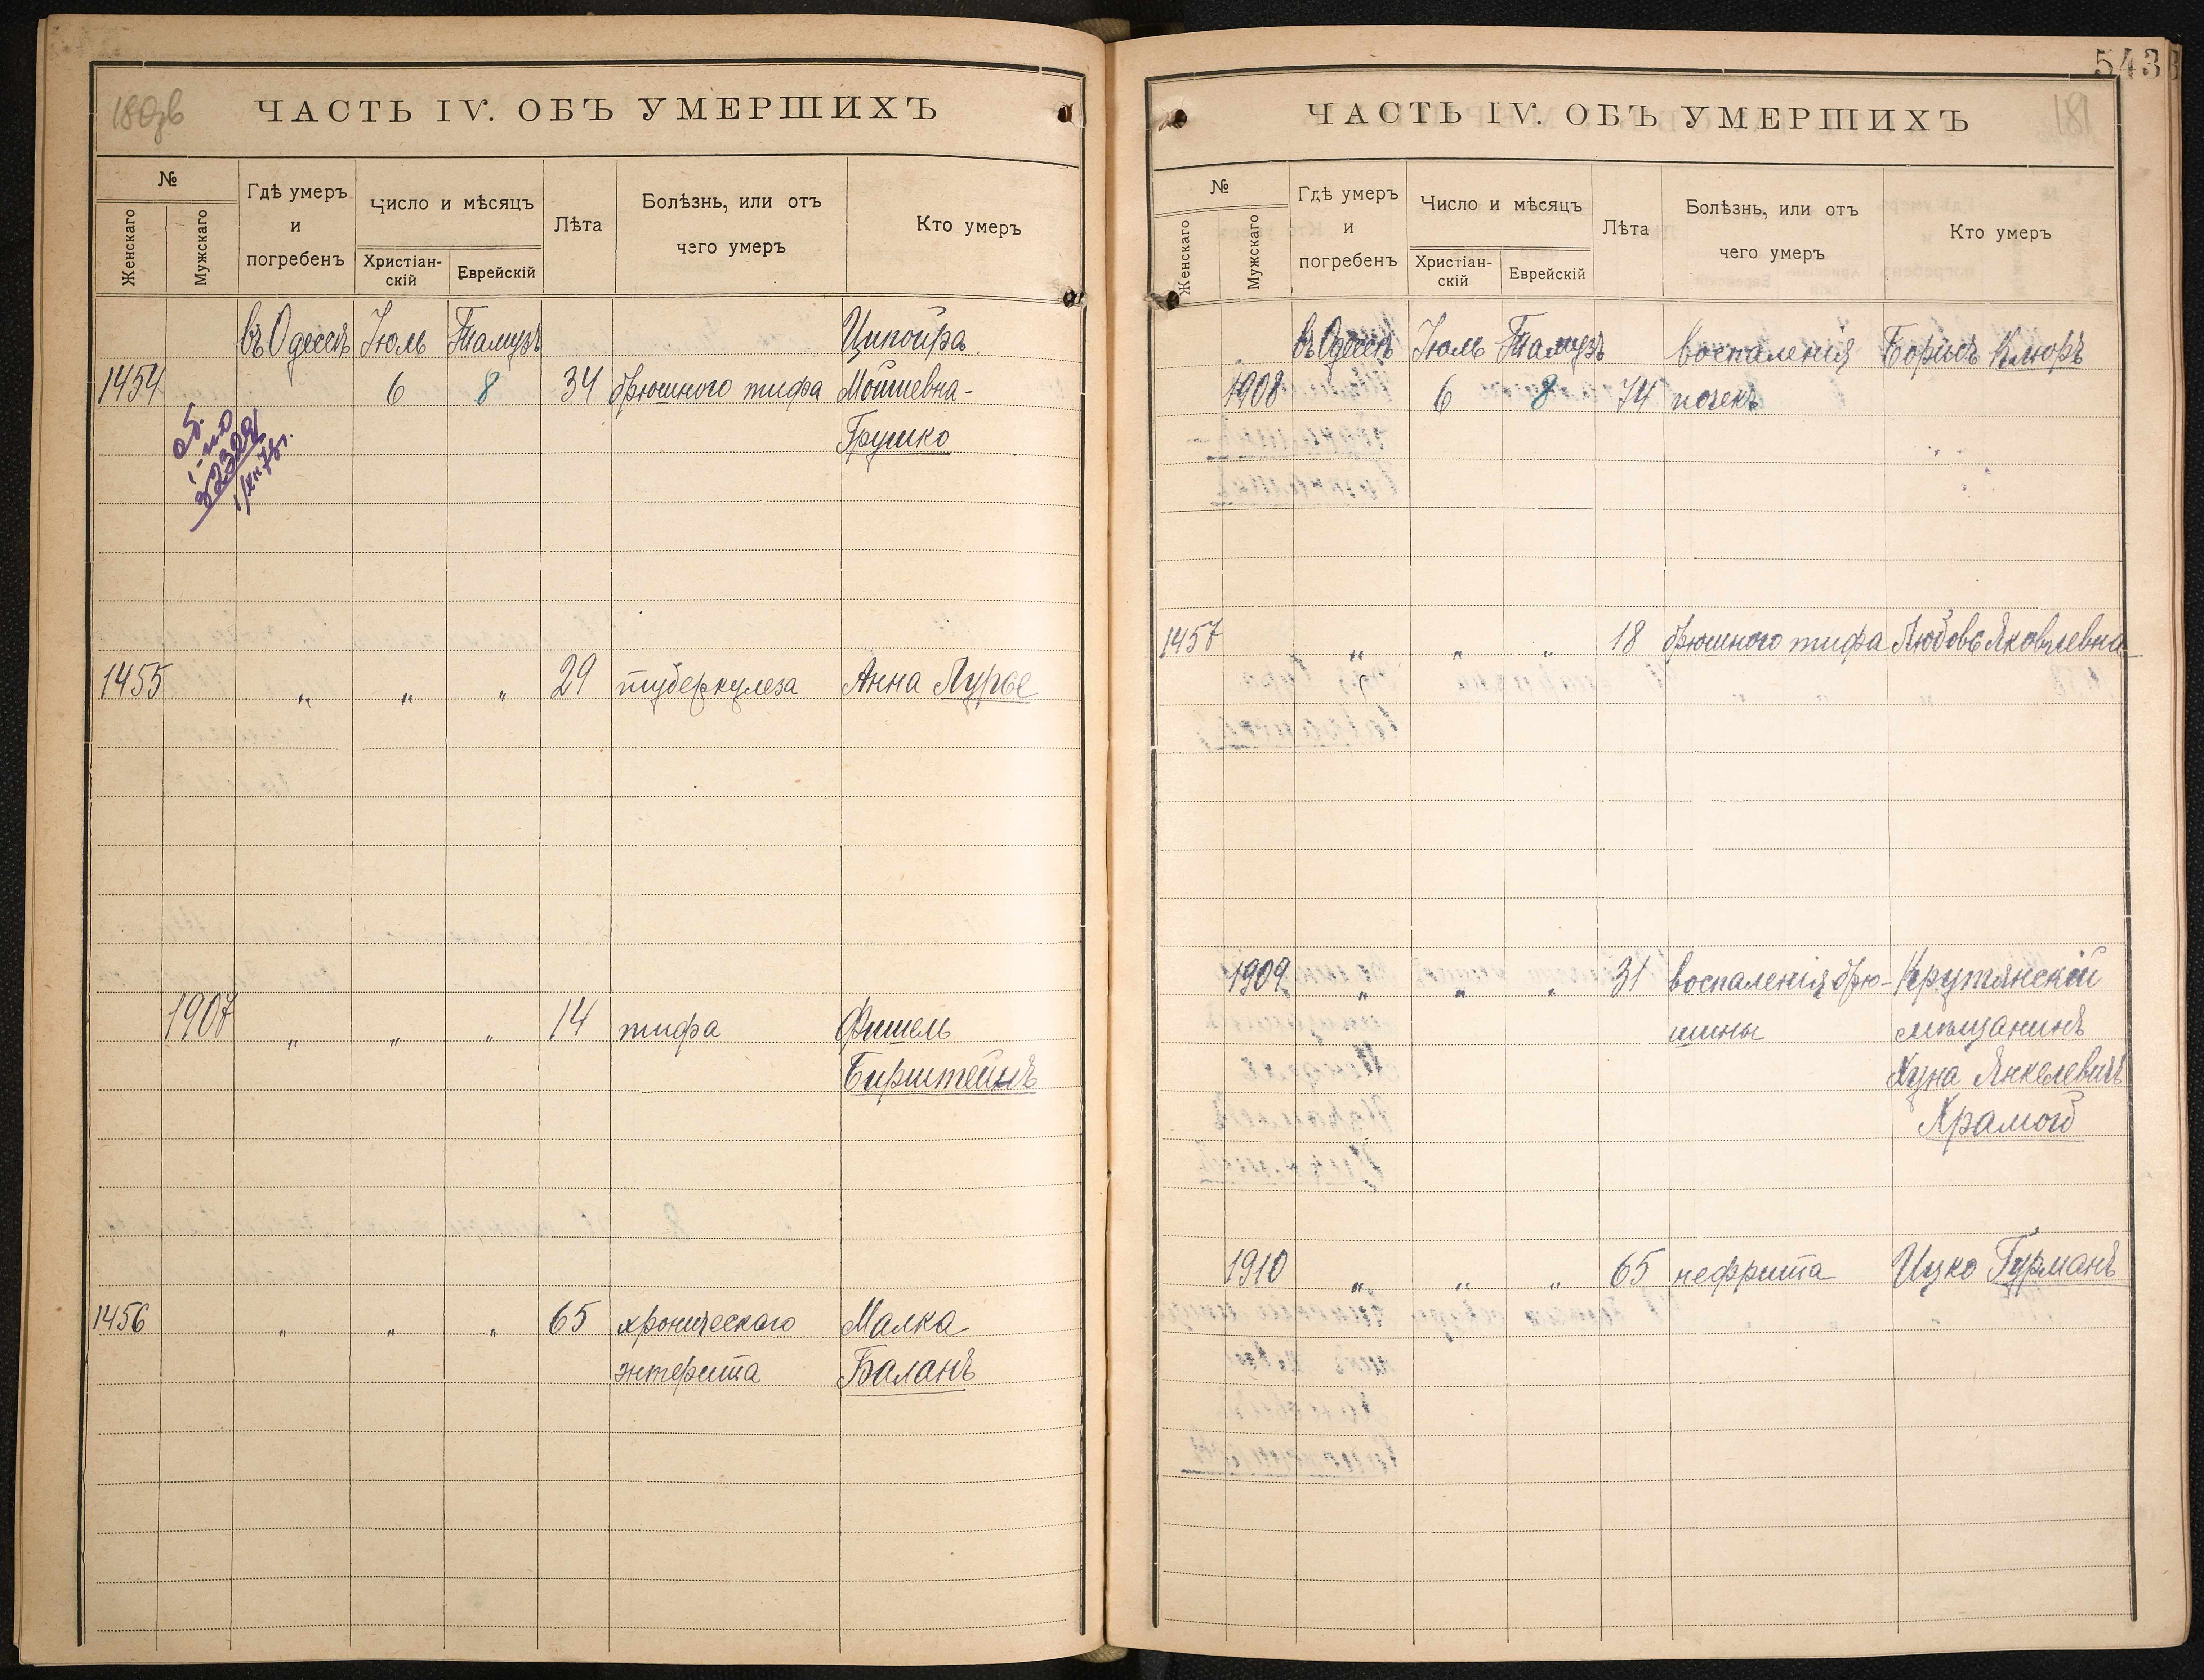 180зв
ЧАСТЬ IV. ОБЪ УМЕРШИХЪ
№
Женскаго
Мужскаго
Гдѣ умеръ
и
погребенъ
Число и мѣсяцъ
Христіан-
скій
Еврейскій
Лѣта
Болѣзнь, или отъ
чего умеръ
Кто умеръ
въ Одессѣ Іюль Тамузъ Ципойра
1454 6 8 34 брюшного тифа Мошевна-
Грушко
1455 " " " 29 туберкулеза Анна Лурье
1907 " " " 14 тифа Фишель
Бирштейнъ
1456 " " " 65 хроническаго Малка
энтерита Баланъ
543
181
ЧАСТЬ IV. ОБЪ УМЕРШИХЪ
№
Женскаго
Мужскаго
Гдѣ умеръ
и
погребенъ
Число и мѣсяцъ
Христіан-
скій
Еврейскій
Лѣта
Болѣзнь, или отъ
чего умеръ
Кто умеръ
въ Одессѣ Іюль Тамузъ воспаленія Борисъ Клюръ
1908 6 8 74 почекъ
1457 " " " 18 брюшного тифа Любовь Яковлевна
1909 " " " 31 воспаленія брю- Крутянскій
шины мѣщанинъ
Хуна Янкелевичъ
Храмой
1910 " " " 65 нефрита Ицко Гурманъ